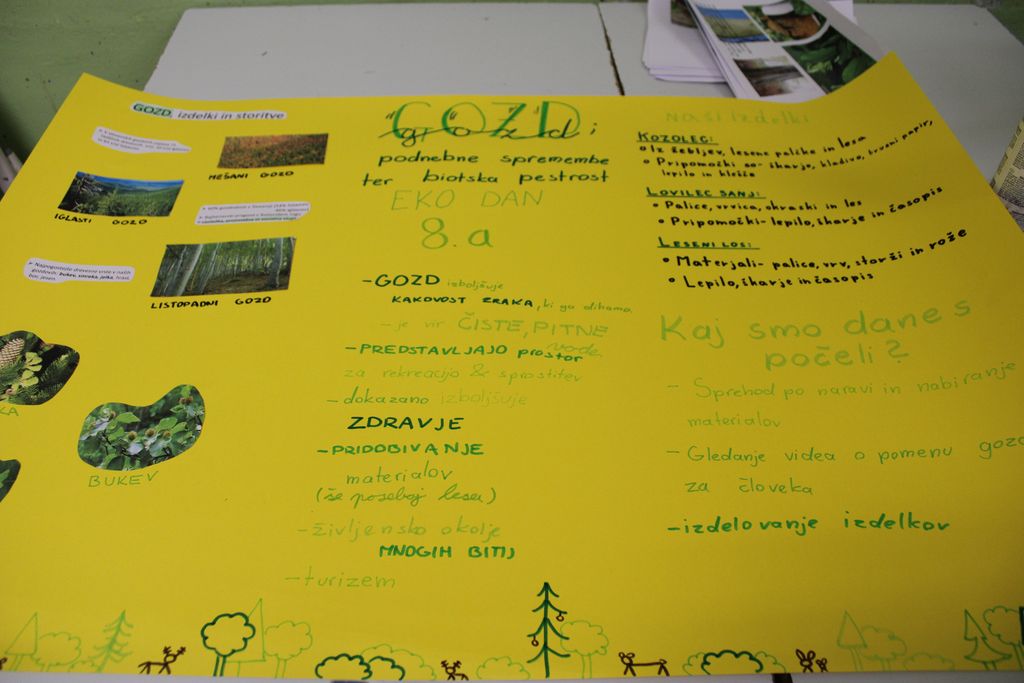 GOZD, izdelki in storitve
MEŠANI GOZD
IGLASTI GOZD
LISTOPADNI GOZD
KA
BUKEV
GOZD
gozd;
podnebne spremembe
ter biotska pestrost
EKO DAN
8.a
-GOZD izboljšuje
KAKOVOST ZRAKA, ki ga dihamo
- je vir ČISTE, PITNE
vode
-PREDSTAVLJAJO prostor
za rekreacijo & sprostitev
- dokazano izboljšuje
ZDRAVJE
-PRIDOBIVANJE
materialov
(še posebej lesa)
-življensko okolje
MNOGIH BITIJ
-turizem
naši izdelki
KOZOLEC:
• Iz žebljev, lesene palike in lesa
• Pripomočki so- škarje, kladivo, brusni papir,
lepilo in klešče
LOVILEC SANJ:
• Palice, vrvica, okraski in les
• Pripomočki- lepilo, škarje in časopis
LESENI LOS:
• Materjali- palice, vrv, storži in rože
• Lepilo, škarje in časopis
Kaj smo danes
počeli?
- Sprehod po naravi in nabiranje
materialov
- Gledanje videa o pomenu gozda
za človeka
-izdelovanje izdelkov